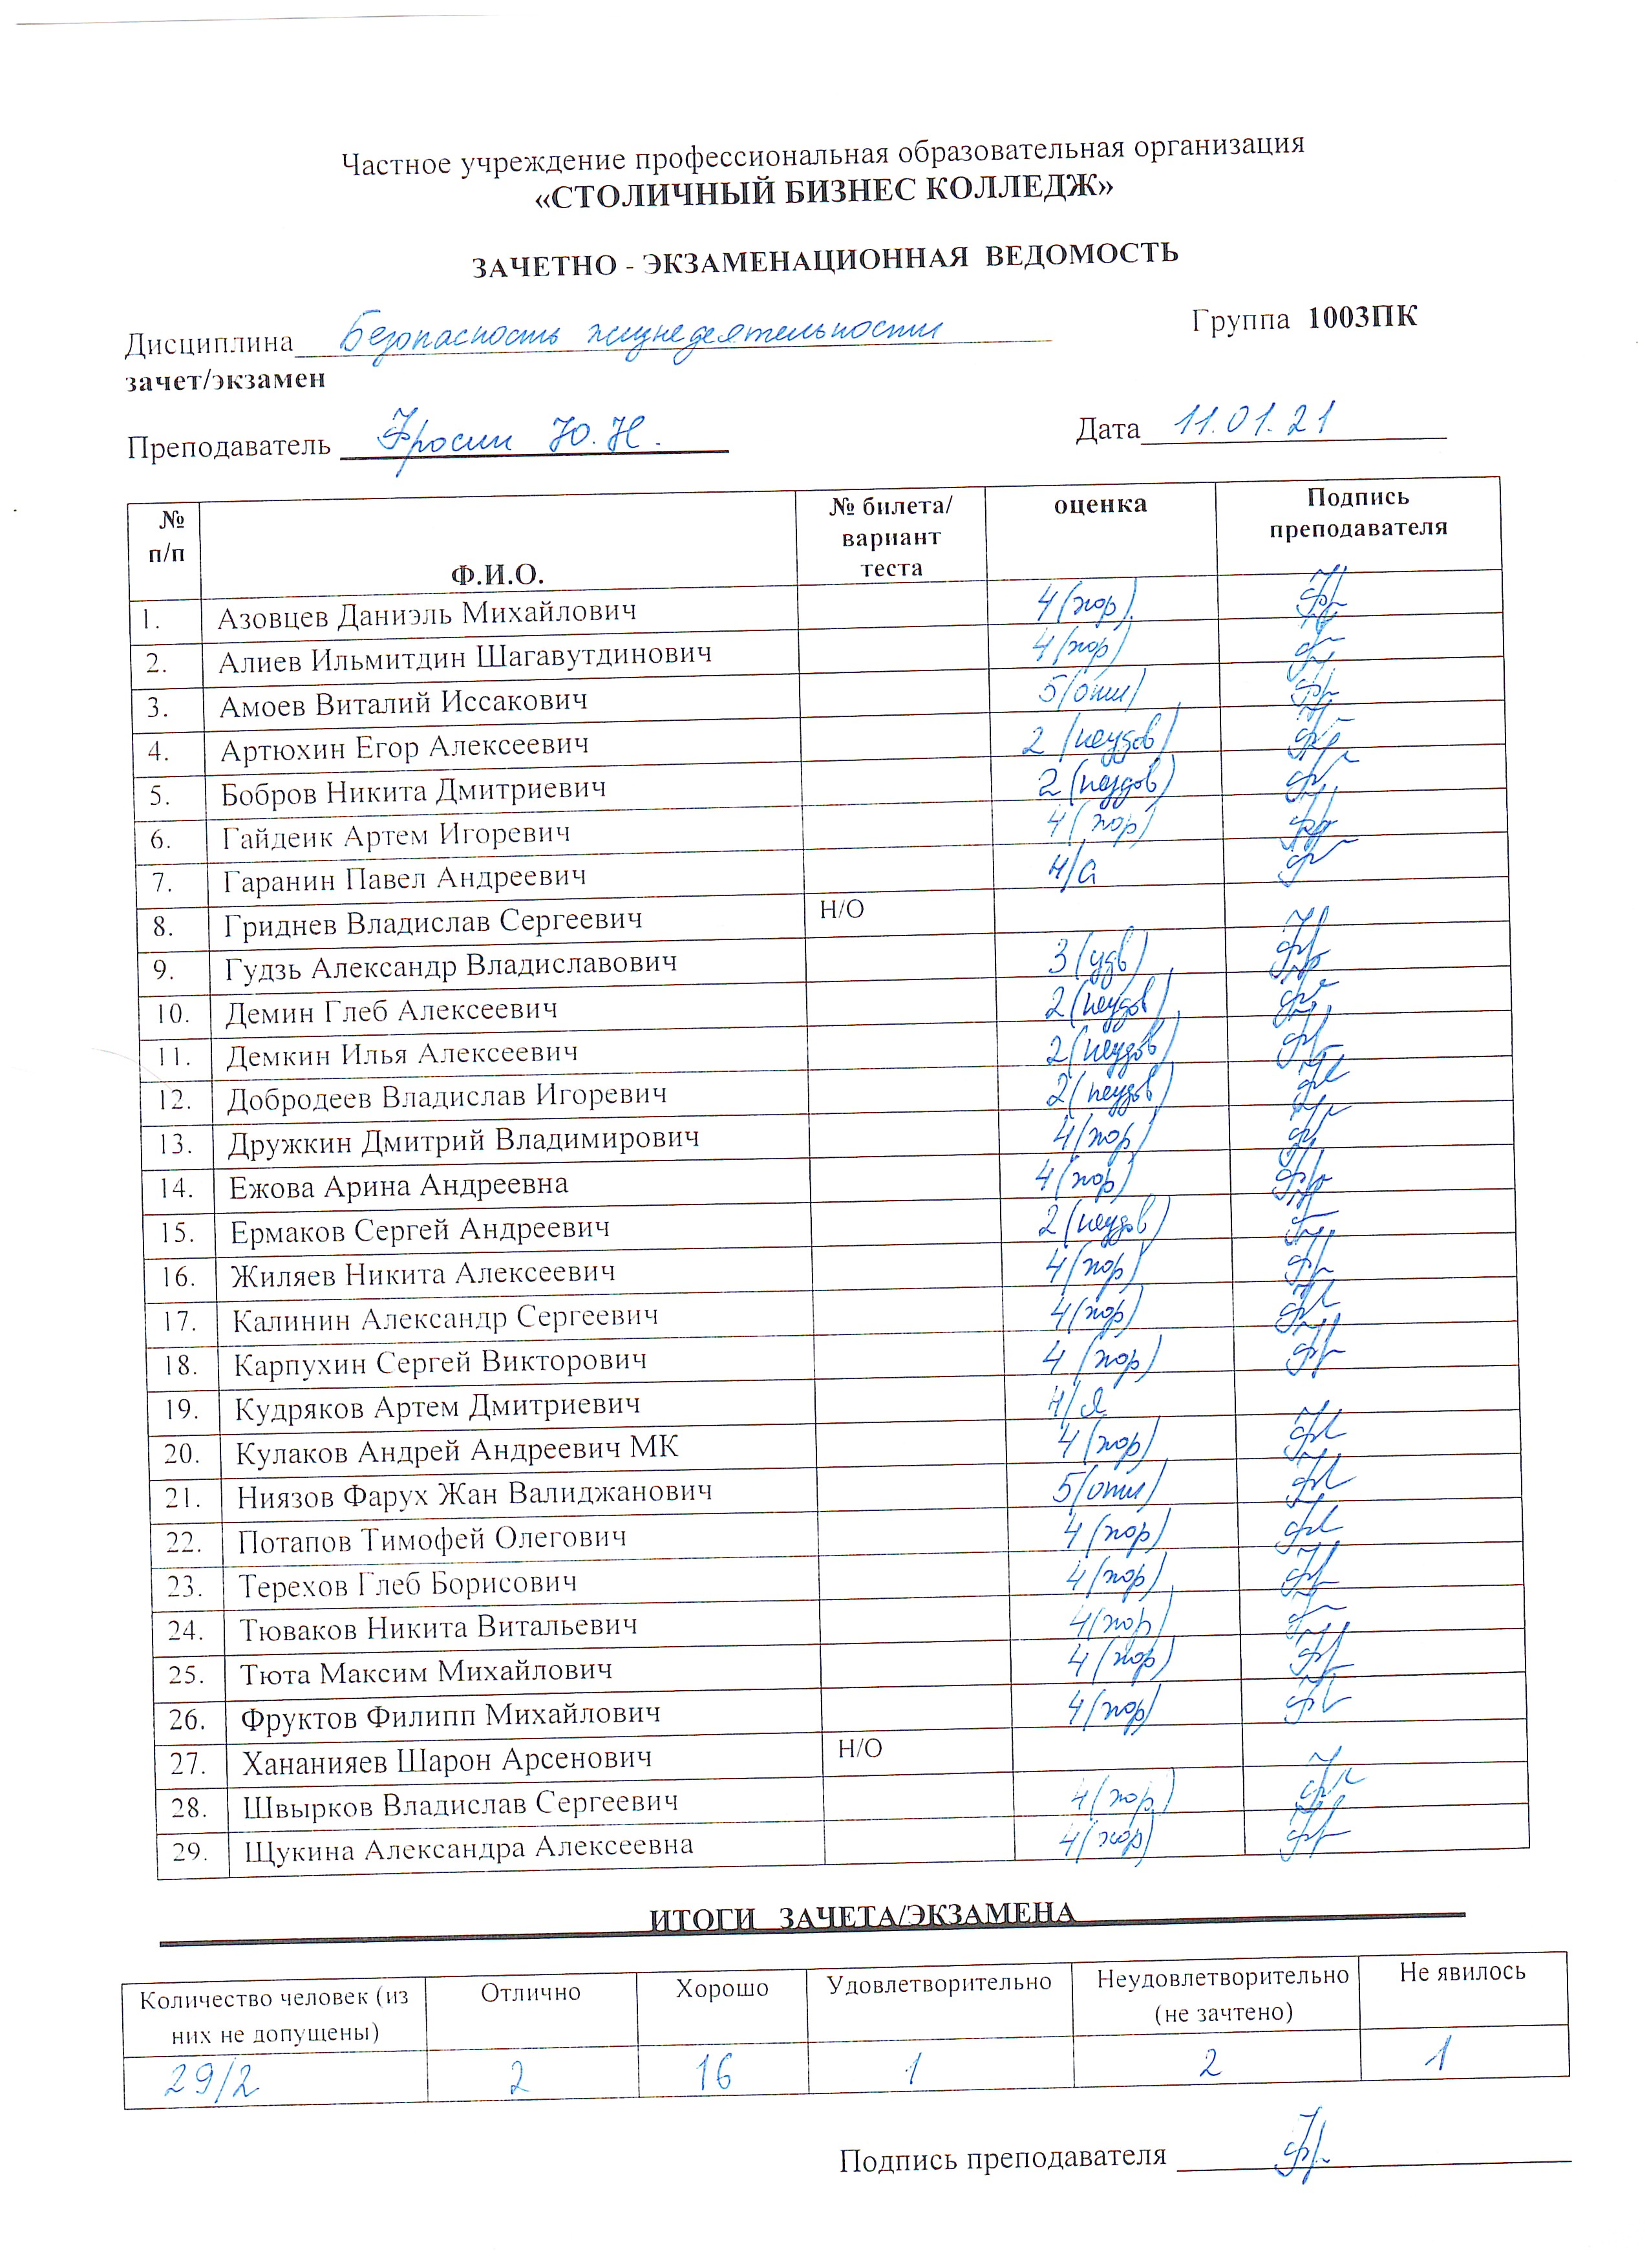 Частное учреждение профессиональная образовательная организация
«СТОЛИЧНЫЙ БИЗНЕС КОЛЛЕДЖ»
ЗАЧЕТНО - ЭКЗАМЕНАЦИОННАЯ ВЕДОМОСТЬ
Дисциплина Безопасность жизнедеятельности Группа 1003ПК
зачет/экзамен
Преподаватель Фросин Ю.Н. Дата 11.01.21
№ п/п Ф.И.О. № билета/ вариант теста оценка Подпись преподавателя
1. Азовцев Даниэль Михайлович 4(хор)
2. Алиев Ильмитдин Шагавутдинович 4(хор)
3. Амоев Виталий Иссакович 5(отл)
4. Артюхин Егор Алексеевич 2 (неудов)
5. Бобров Никита Дмитриевич 2(неудов)
6. Гайдеик Артем Игоревич 4(хор)
7. Гаранин Павел Андреевич
8. Гриднев Владислав Сергеевич Н/О
9. Гудзь Александр Владиславович 3(удв)
10. Демин Глеб Алексеевич 2(неудов)
11. Демкин Илья Алексеевич 2(неудов)
12. Добродеев Владислав Игоревич 2(неудов)
13. Дружкин Дмитрий Владимирович 4(хор)
14. Ежова Арина Андреевна 4(хор)
15. Ермаков Сергей Андреевич 2(неудов)
16. Жиляев Никита Алексеевич 4(хор)
17. Калинин Александр Сергеевич 4(хор)
18. Карпухин Сергей Викторович 4 (хор)
19. Кудряков Артем Дмитриевич Н/Я
20. Кулаков Андрей Андреевич МК 4(хор)
21. Ниязов Фарух Жан Валиджанович 5(отл)
22. Потапов Тимофей Олегович 4(хор)
23. Терехов Глеб Борисович 4(хор)
24. Тюваков Никита Витальевич 4(хор)
25. Тюта Максим Михайлович 4(хор)
26. Фруктов Филипп Михайлович 4(хор)
27. Хананияев Шарон Арсенович Н/О
28. Швырков Владислав Сергеевич 4(хор)
29. Щукина Александра Алексеевна 4(хор)
ИТОГИ ЗАЧЕТА/ЭКЗАМЕНА
Количество человек (из них не допущены) Отлично Хорошо Удовлетворительно Неудовлетворительно (не зачтено) Не явилось
29/2 2 16 1 2 1
Подпись преподавателя